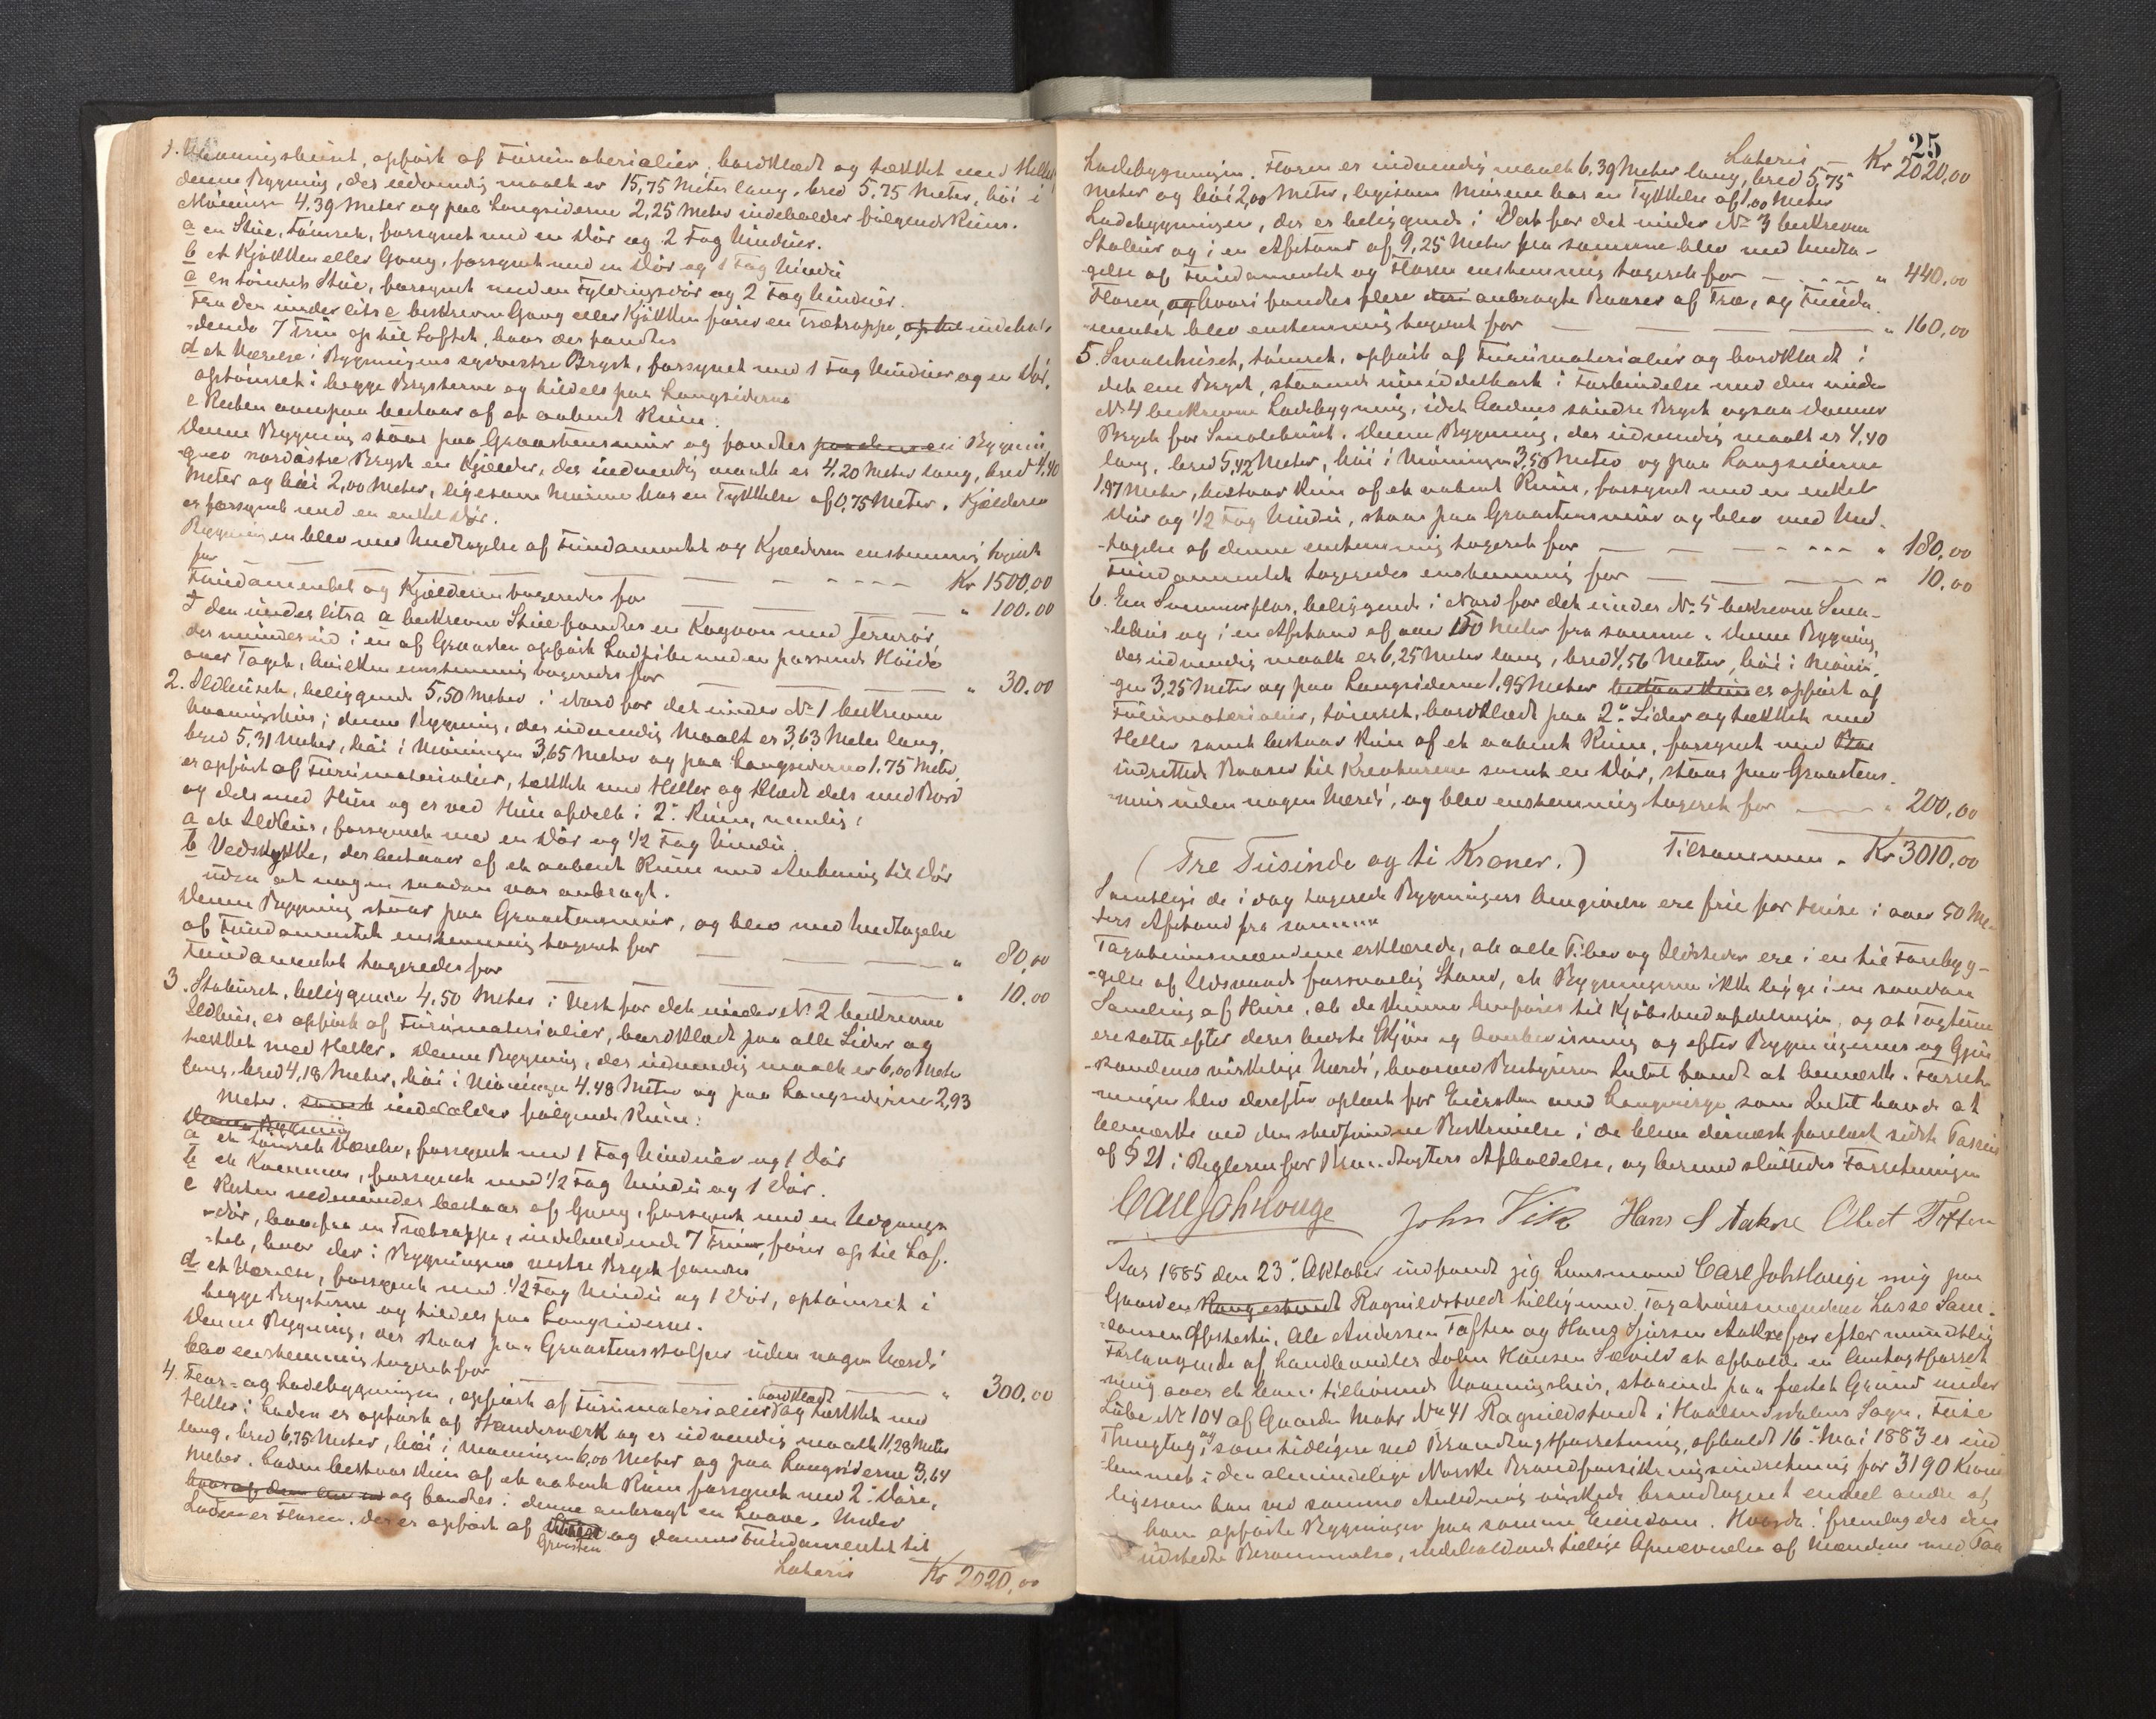 1. Vaaningshuset, opført af Furumaterialier, bordklædt og tækket med Heller,
denne Bygning, der udvendig maalt er 15,75 Meter lang, bred 5,75 Meter, høi i
Møningen 4,39 Meter og paa Langsiderne 2,25 Meter indeholder følgende Rum.
a en Stue, tømret, forsynet med en Dør og 2 Fag Vinduer.
b et Kjøkken eller Gang, forsynet med en Dør og 1 Fag Vindu
c en tømret Stue, forsynet med en Fyldingsdør og 2 Fag Vinduer.
Fra den under litra c beskrevne Gang eller Kjøkken fører en Trætrappe, op til indehol-
dende 7 Trin op til Loftet, hvor der fandtes
d et Værelse i Bygningens sydvestre Bryst, forsynet med 1 Fag Vinduer og en Dør,
optømret i begge Brysterne og tildels paa Langsiderne
e Resten ovenpaa bestaar af et aabent Rum.
Denne Bygning staar paa Graastensmur og fandtes paa denne i Bygnin-
gens nordøstre Bryst en Kjælder, der indvendig maalt er 4,20 Meter lang, bred 4,40
Meter og høi 2,00 Meter, ligesom Murene har en Tykkelse af 0,75 Meter. Kjælderen
er forsynet med en enkel Dør.
Bygningen blev med Undtagelse af Fundamentet og Kjælderen enstemmig taxeret
for — Kr 1500,00
Fundamentet og Kjælderen taxeredes for — " 100.00
I den under litra a beskrevne Stue fandtes en Kogoon med Jernrør,
der munder ud i en af Graasten opført Ludpibe med en passende Høide
over Taget, hvilken enstemmig taxeredes for — " 30.00
2. Ildhuset, beliggende 5,50 Meter i Nord for det under No 1 beskrevne
Vaaningshus; denne Bygning, der udvendig maalt er 3,63 Meter lang,
bred 5,31 Meter, høi i Møningen 3,65 Meter og paa Langsiderne 1.75 Meter,
er opført af Furumaterialier, tækket med Heller og klædt dels med Bord
og dels med Hun og er ved Hun afdelt i 2 Rum, nemlig:
a et Ildhus, forsynet med en Dør og 1/2 Fag Vindu.
b Vedskykke, der bestaaer af et aabent Rum med Aabning til Dør
uden at nogen saadan var anbragt.
Denne Bygning staar paa Graastensmur, og blev med Undtagelse
af Fundamentet enstemmig taxeret for — " 80,00
Fundamentet taxeredes for — " 10.00
3. Staburet, beliggende 4,50 Meter i Vest for det under No 2 beskrevne
Ildhus, er opført af Furumaterialier, bordklædt paa alle Sider og
tækket med Heller. Denne Bygning, der udvendig maalt er 6,00 Meter
lang, bred 4,18 Meter, høi i Møningen 4,48 Meter og paa Langsiderne 2,93
Meter, samt indeholder følgende Rum:
Denne Bygning
a et tømret Værelse, forsynet med 1 Fag Vinduer og 1 Dør
b et Kammer, forsynet med 1/2 Fag Vindu og 1 Dør.
c Resten nedenunder bestaar af Gang, forsynet med en Udgangs-
dør, hvorfra en Trætrappe, indeholdende 7 Trin, fører op til Lof-
tet, hvor der i Bygningens vestre Bryst fandtes
d et Værelse, forsynet med 1/2 Fag Vindu og 1 Dør, optømret i
begge Brysterne og tildels paa Langsiderne.
Denne Bygning, der staar paa Graastensstolper uden nogen Værdi
blev enstemmig taxeret for — " 300,00
4. Flor- og Ladebygningen, opført af Furumaterialier, bordklædt og tækket med
Heller; Laden er opført af Standerværk og er udvendig maalt 11,28 Meter
lang, bred 6,75 Meter, høi i Møningen 6,00 Meter og paa Langsiderne 3,64
Meter. Laden bestaar kun af et aabent Rum forsynet med 2 Døre,
og fandtes i denne anbragt en Laave. Under
Laden er Floren, der er opført af Graasten og danner Fundamentet til
Lateris Kr 2020,00
25
Lateris Kr 2020,00
Ladebygningen. Floren er indvendig maalt 6,39 Meter lang, bred 5,75
Meter og høi 2,00 Meter, ligesom Murene har en Tykkelse af 1,00 Meter
Ladebygningen, der er beliggende i Vest for det under No 3 beskrevne
Stabur og i en Afstand af 9,25 Meter fra samme blev med Undta-
gelse af Fundamentet og Floren enstemmig taxeret for — " 440,00
Floren, og hvori fandtes flere anbragte Baaser af Træ, og Funda-
mentet blev enstemmig taxeret for — " 160,00
5. Smalehuset, tømret, opført af Furumaterialier og bordklædt i
det ene Bryst, staaende umiddelbart i Forbindelse med den under
No 4 beskrevne Ladebygning, idet Ladens søndre Bryst ogsaa danner
Bryst for Smalehuset. Denne Bygning, der udvendig maalt er 4,40
lang, bred 5,42 Meter, høi i Møningen 3,50 Meter og paa Langsiderne
1,97 Meter, bestaar kun af et aabent Rum, forsynet med en enkel
Dør og 1/2 Fag Vindu, staar paa Graastensmur og blev med Und-
tagelse af denne enstemmig taxeret for — " 180,00
Fundamentet taxeredes enstemmig for — " 10.00
6. En Sommerflor, beliggende i Nord for det under No 5 beskrevne Sma-
lehus og i en Afstand af over 150 Meter fra samme. Denne Bygning,
der udvendig maalt er 6,25 Meter lang, bred 4,56 Meter, høi i Mønin-
gen 3,25 Meter og paa Langsiderne 1,95 Meter bestaar kun er opført af
Furumaterialier, tømret, bordklædt paa 2 Sider og tækket med
Heller samt bestaar kun af et aabent Rum, forsynet med
indrettede Baaser til Kreaturene samt en Dør, staar paa Graastens-
mur uden nogen Værdi, og blev enstemmig taxeret for — " 200,00
(Tre Tusinde og ti Kroner.) Tilsammen. Kr 3010,00
Samtlige de i dag taxerede Bygningers Omgivelse ere frie for Huse i over 50 Me-
ters Afstand fra samme
Taxationsmændene erklærede, at alle Piber og Ildsteder ere i en til Forebyg-
gelse af Ildsvaade forsvarlig Stand, at Bygningerne ikke ligge i en saadan
Samling af Huse, at de kunne henføres til Kjøbstadafdelingen, og at Taxterne
ere satte efter deres bedste Skjøn og Overbevisning og efter Bygningernes og Gjen-
standenes virkelige Værdi, hvorved Bestyreren Intet fandt at bemærke. Forret-
ningen blev derefter oplæst for Eiersken med Laugværge som Intet havde at
bemærke ved den stedfundne Beskrivelse; de blev dernæst forelæst sidste Passus
af § 21 i Reglerne for Brandtaxters Afholdelse, og hermed sluttedes Forretningen
Carl Joh Houge John Vik Hans S Aakre Ole A Toften
Aar 1885 den 23. Oktober indfandt jeg Lensmand Carl Joh Houge mig paa
Gaarden Kongestvedt Ragnildstvedt tilligemed Taxationsmændene Lasse Sam-
Ole Andersen Toften og Hans Sjursen Aakre for efter mundtlig
Forlangende af Landhandler John Hansen Sævild at afholde en Omtaxtforret-
ning over et ham tilhørende Vaaningshus, staaende paa fæstet Grund under
Løbe No 104 af Gaarden Matr No 41 Ragnildstvedt i Haalandsdalens Sogn, Fuse
Thinglag, og som tidligere ved Brandtaxtforretning, afholdt 16 Mai 1883 er ind-
lemmet i den almindelige Norske Brandforsikringsindretning for 3190 Kroner
ligesom han ved samme Anledning ønskede brandtaxeret endeel andre af
ham opførte Bygninger paa samme Eiendom. Hvorda! fremlagdes den
udstedte Berammelse, indeholdende tillige Opnævnelse af Mændene med Paa